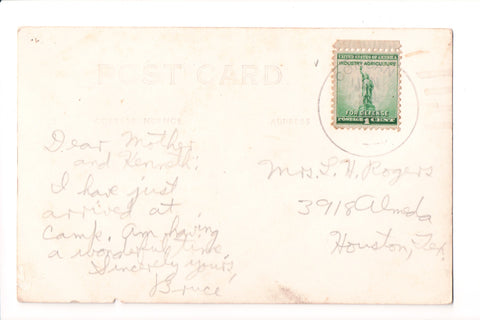 POST CARD
CORRESPONDENCE
ADDRESS
UNITED STATES OF AMERICA
INDUSTRY AGRICULTURE
FOR DEFENSE
POSTAGE 1 CENT
Dear Mother
and Kenneth:
I have just
arrived at
camp. Am having
a wonderful time.
Sincerely yours,
Bruce
Mrs. S. H. Rogers
3918 Almeda
Houston, Tex.